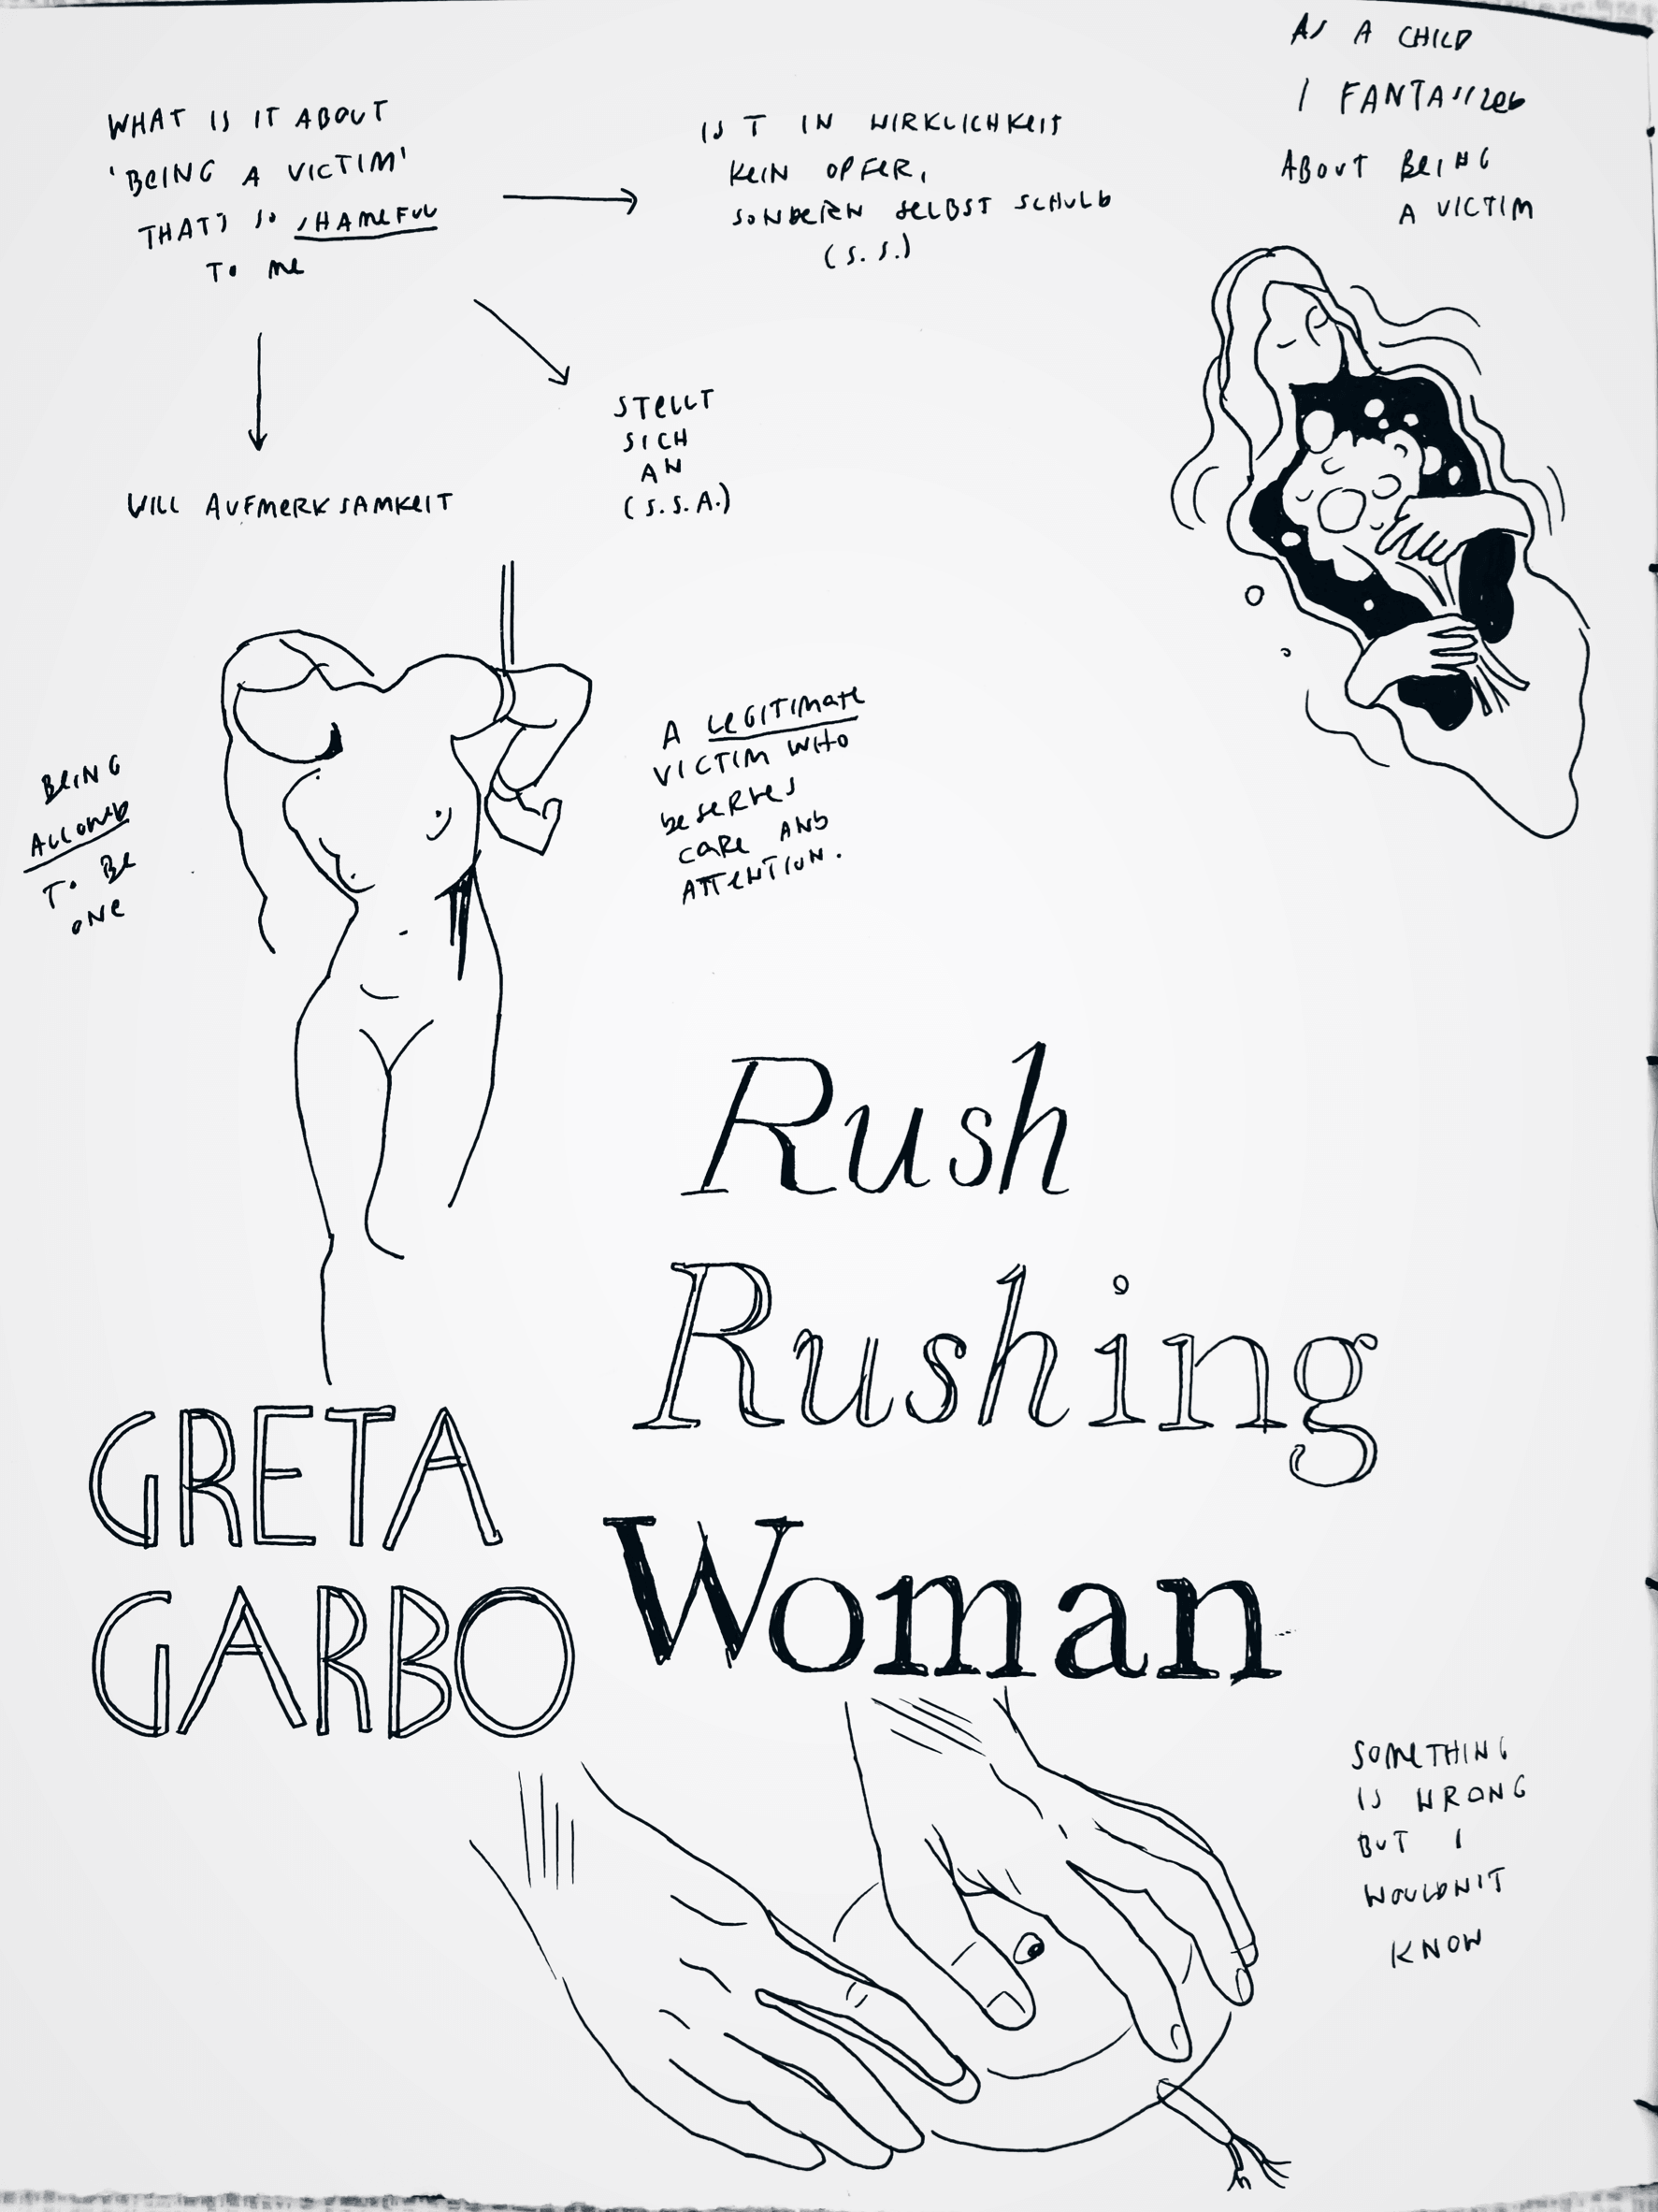 WHAT IS IT ABOUT
'BEING A VICTIM'
THAT'S SO SHAMEFUL
TO ME
IST IN WIRKLICHKEIT
KEIN OPFER,
SONDERN SELBST SCHULD
(S.S.)
AS A CHILD
I FANTASIZED
ABOUT BEING
A VICTIM
STELLT
SICH
AN
(S.S.A.)
WILL AUFMERKSAMKEIT
BEING
ALLOWED
TO BE
ONE
A LEGITIMATE
VICTIM WHO
DESERVES
CARE AND
ATTENTION.
Rush
Rushing
Woman
GRETA
GARBO
SOMETHING
IS WRONG
BUT I
WOULDN'T
KNOW